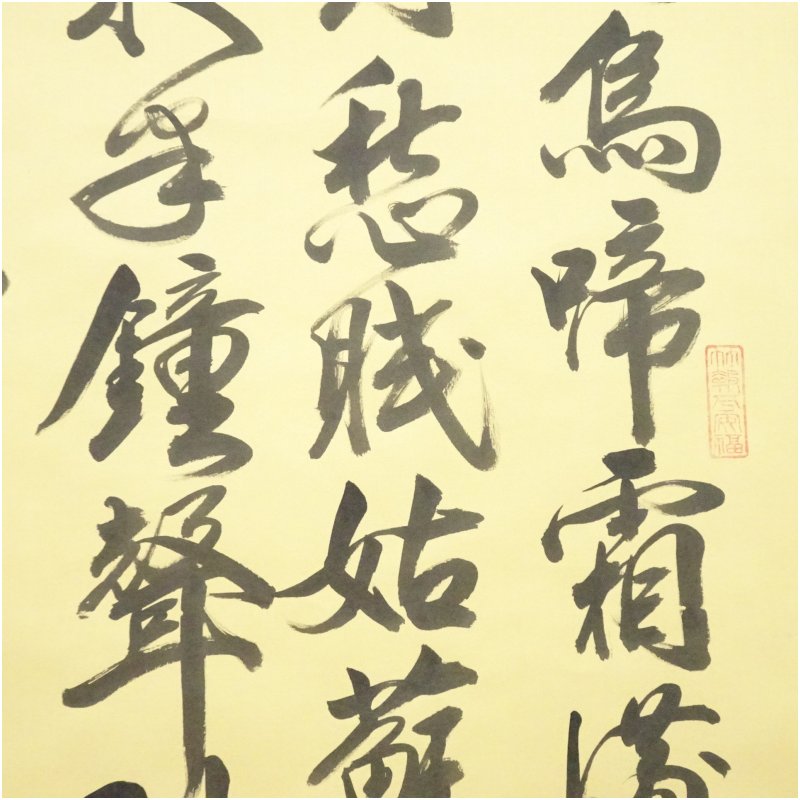 烏啼霜満
愁眠姑蘇
半鐘聲